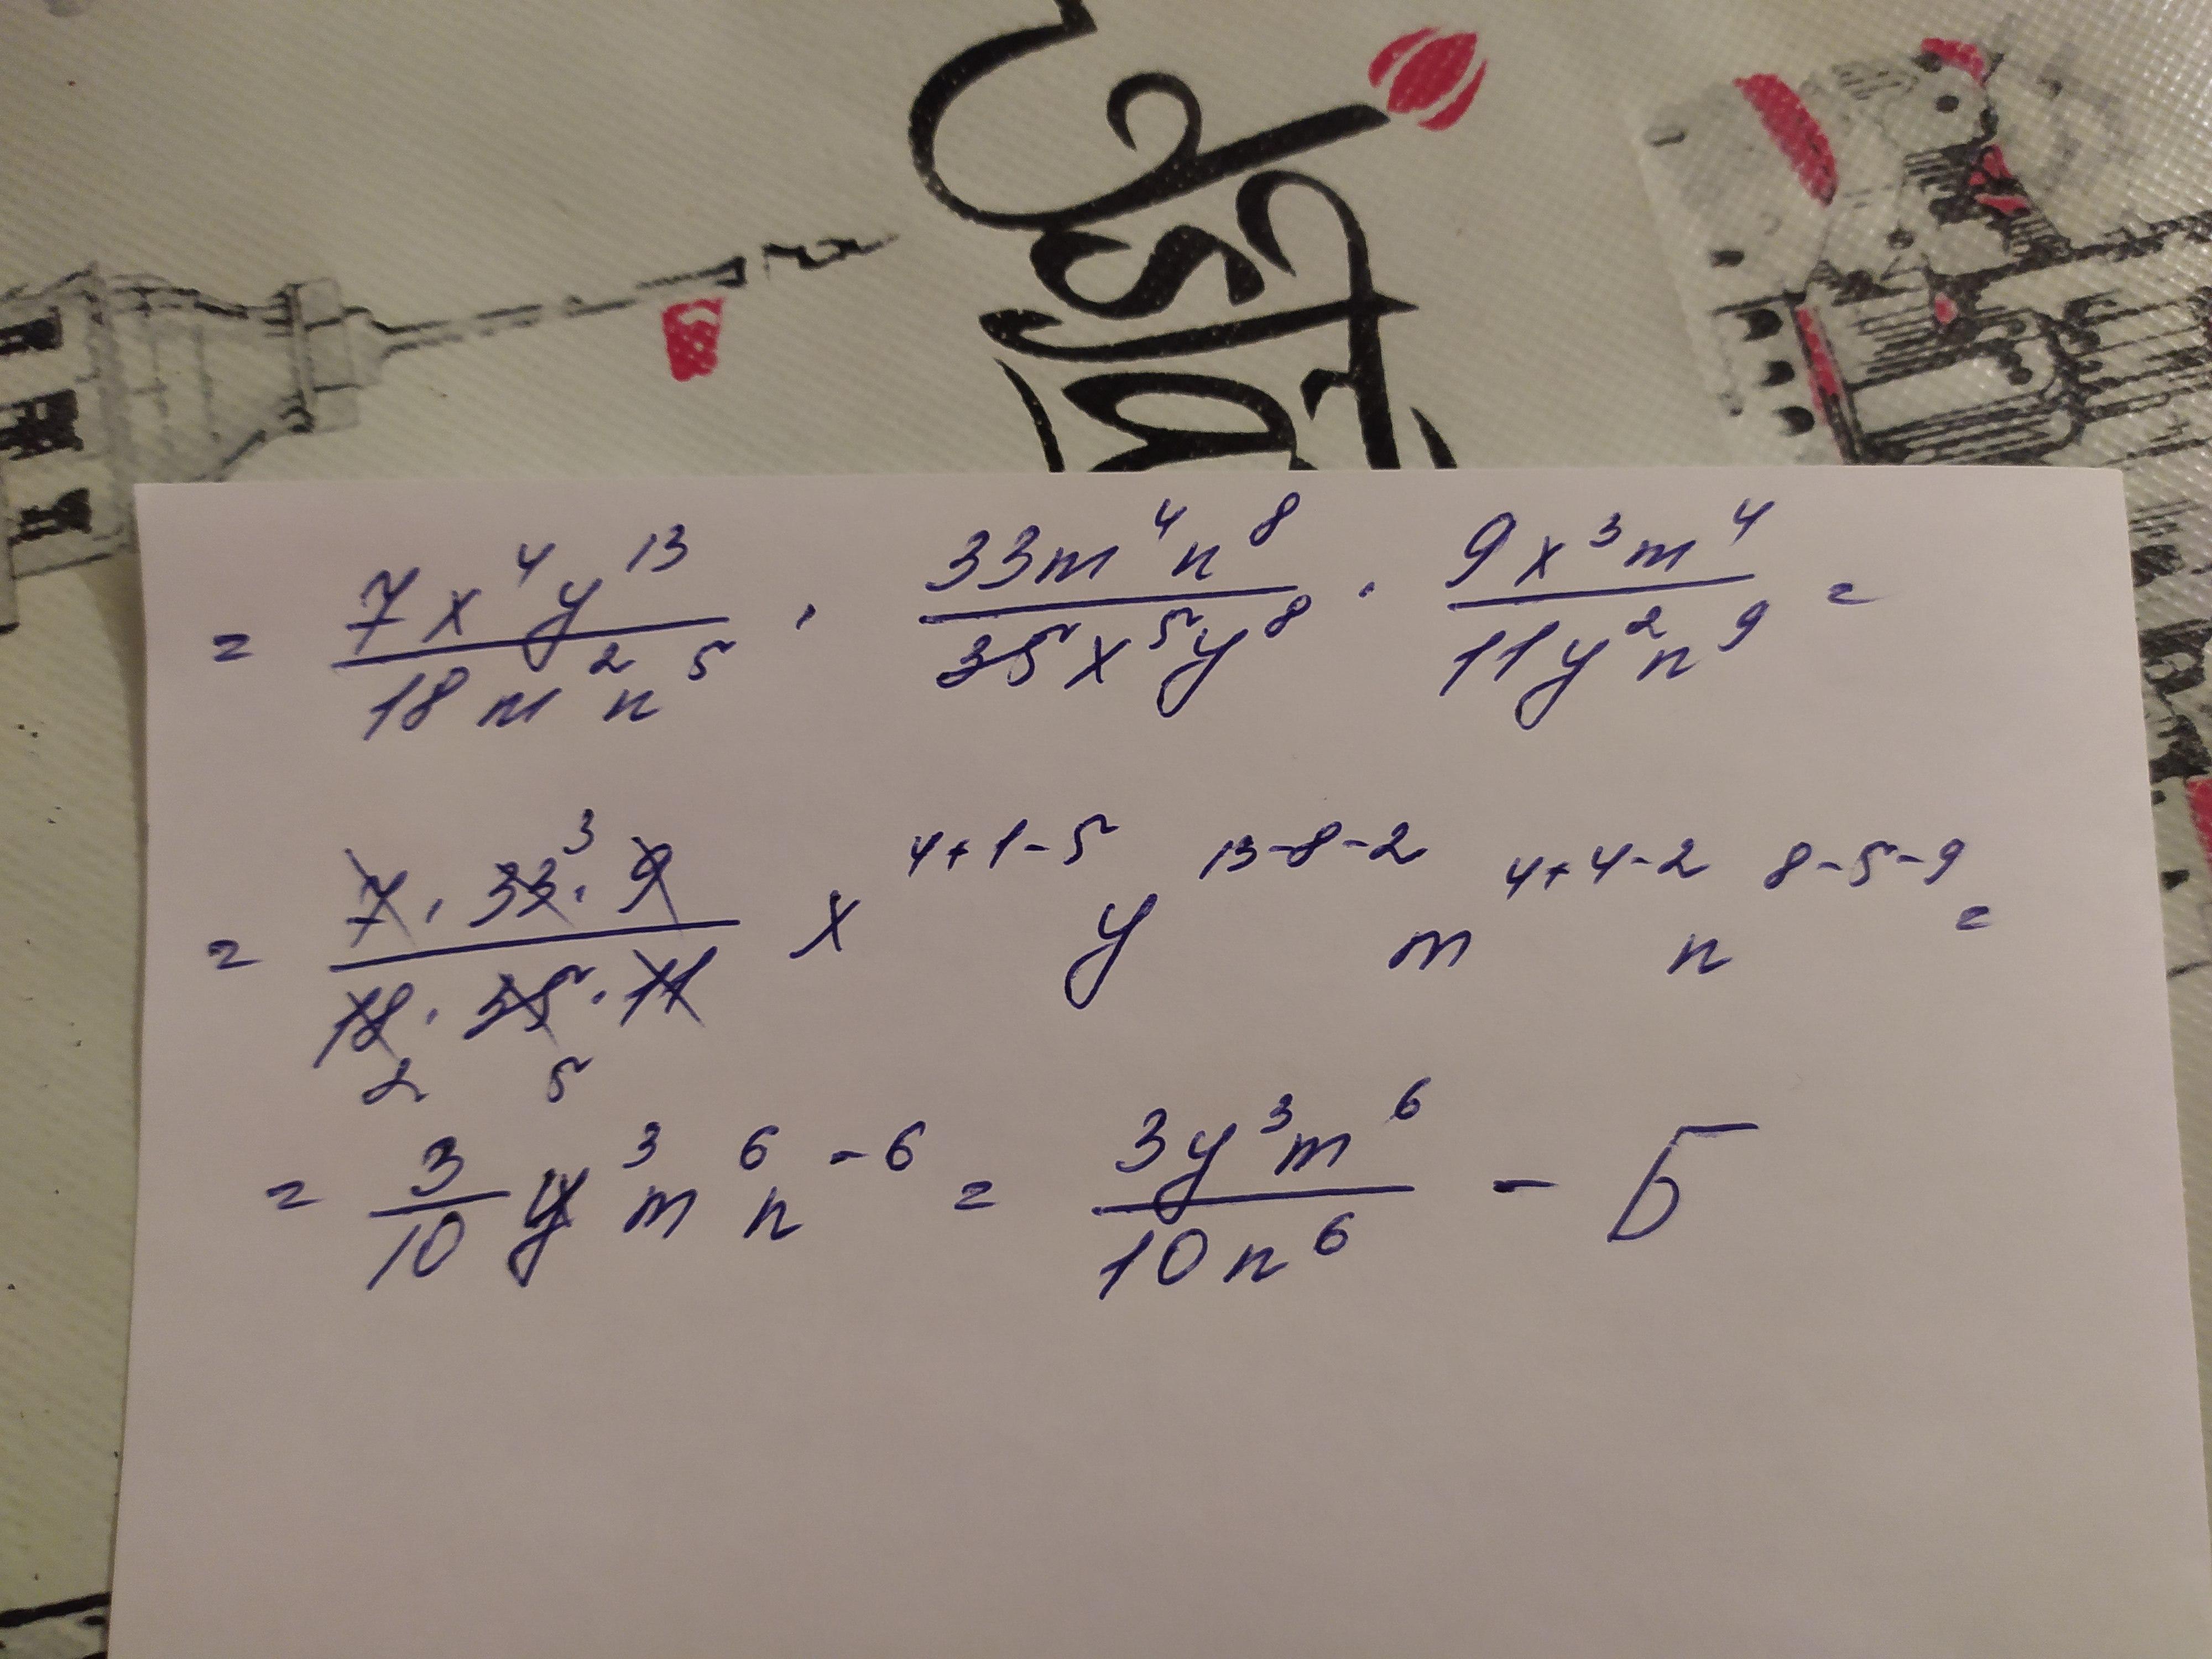 = 7x⁴y¹³/18m²n⁵ · 33m⁴n⁸/35x⁵y⁸ · 9x³m⁴/11y²n⁹ =
= 7·33³·9/18·35·11 x⁴⁺¹⁻⁵ y¹³⁻⁸⁻² m⁴⁺⁴⁻² n⁸⁻⁵⁻⁹ =
2 5
= 3/10 y³m⁶n⁻⁶ = 3y³m⁶/10n⁶ - Б